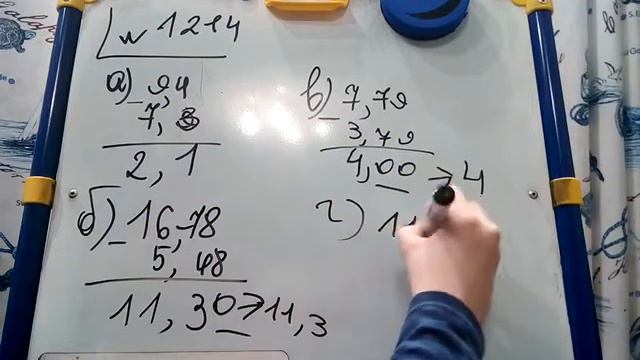 № 1214
а) - 9,4
7,3
2,1
б) - 16,78
5,48
11,30 → 11,3
в) - 7,79
3,79
4,00 → 4
г) 11